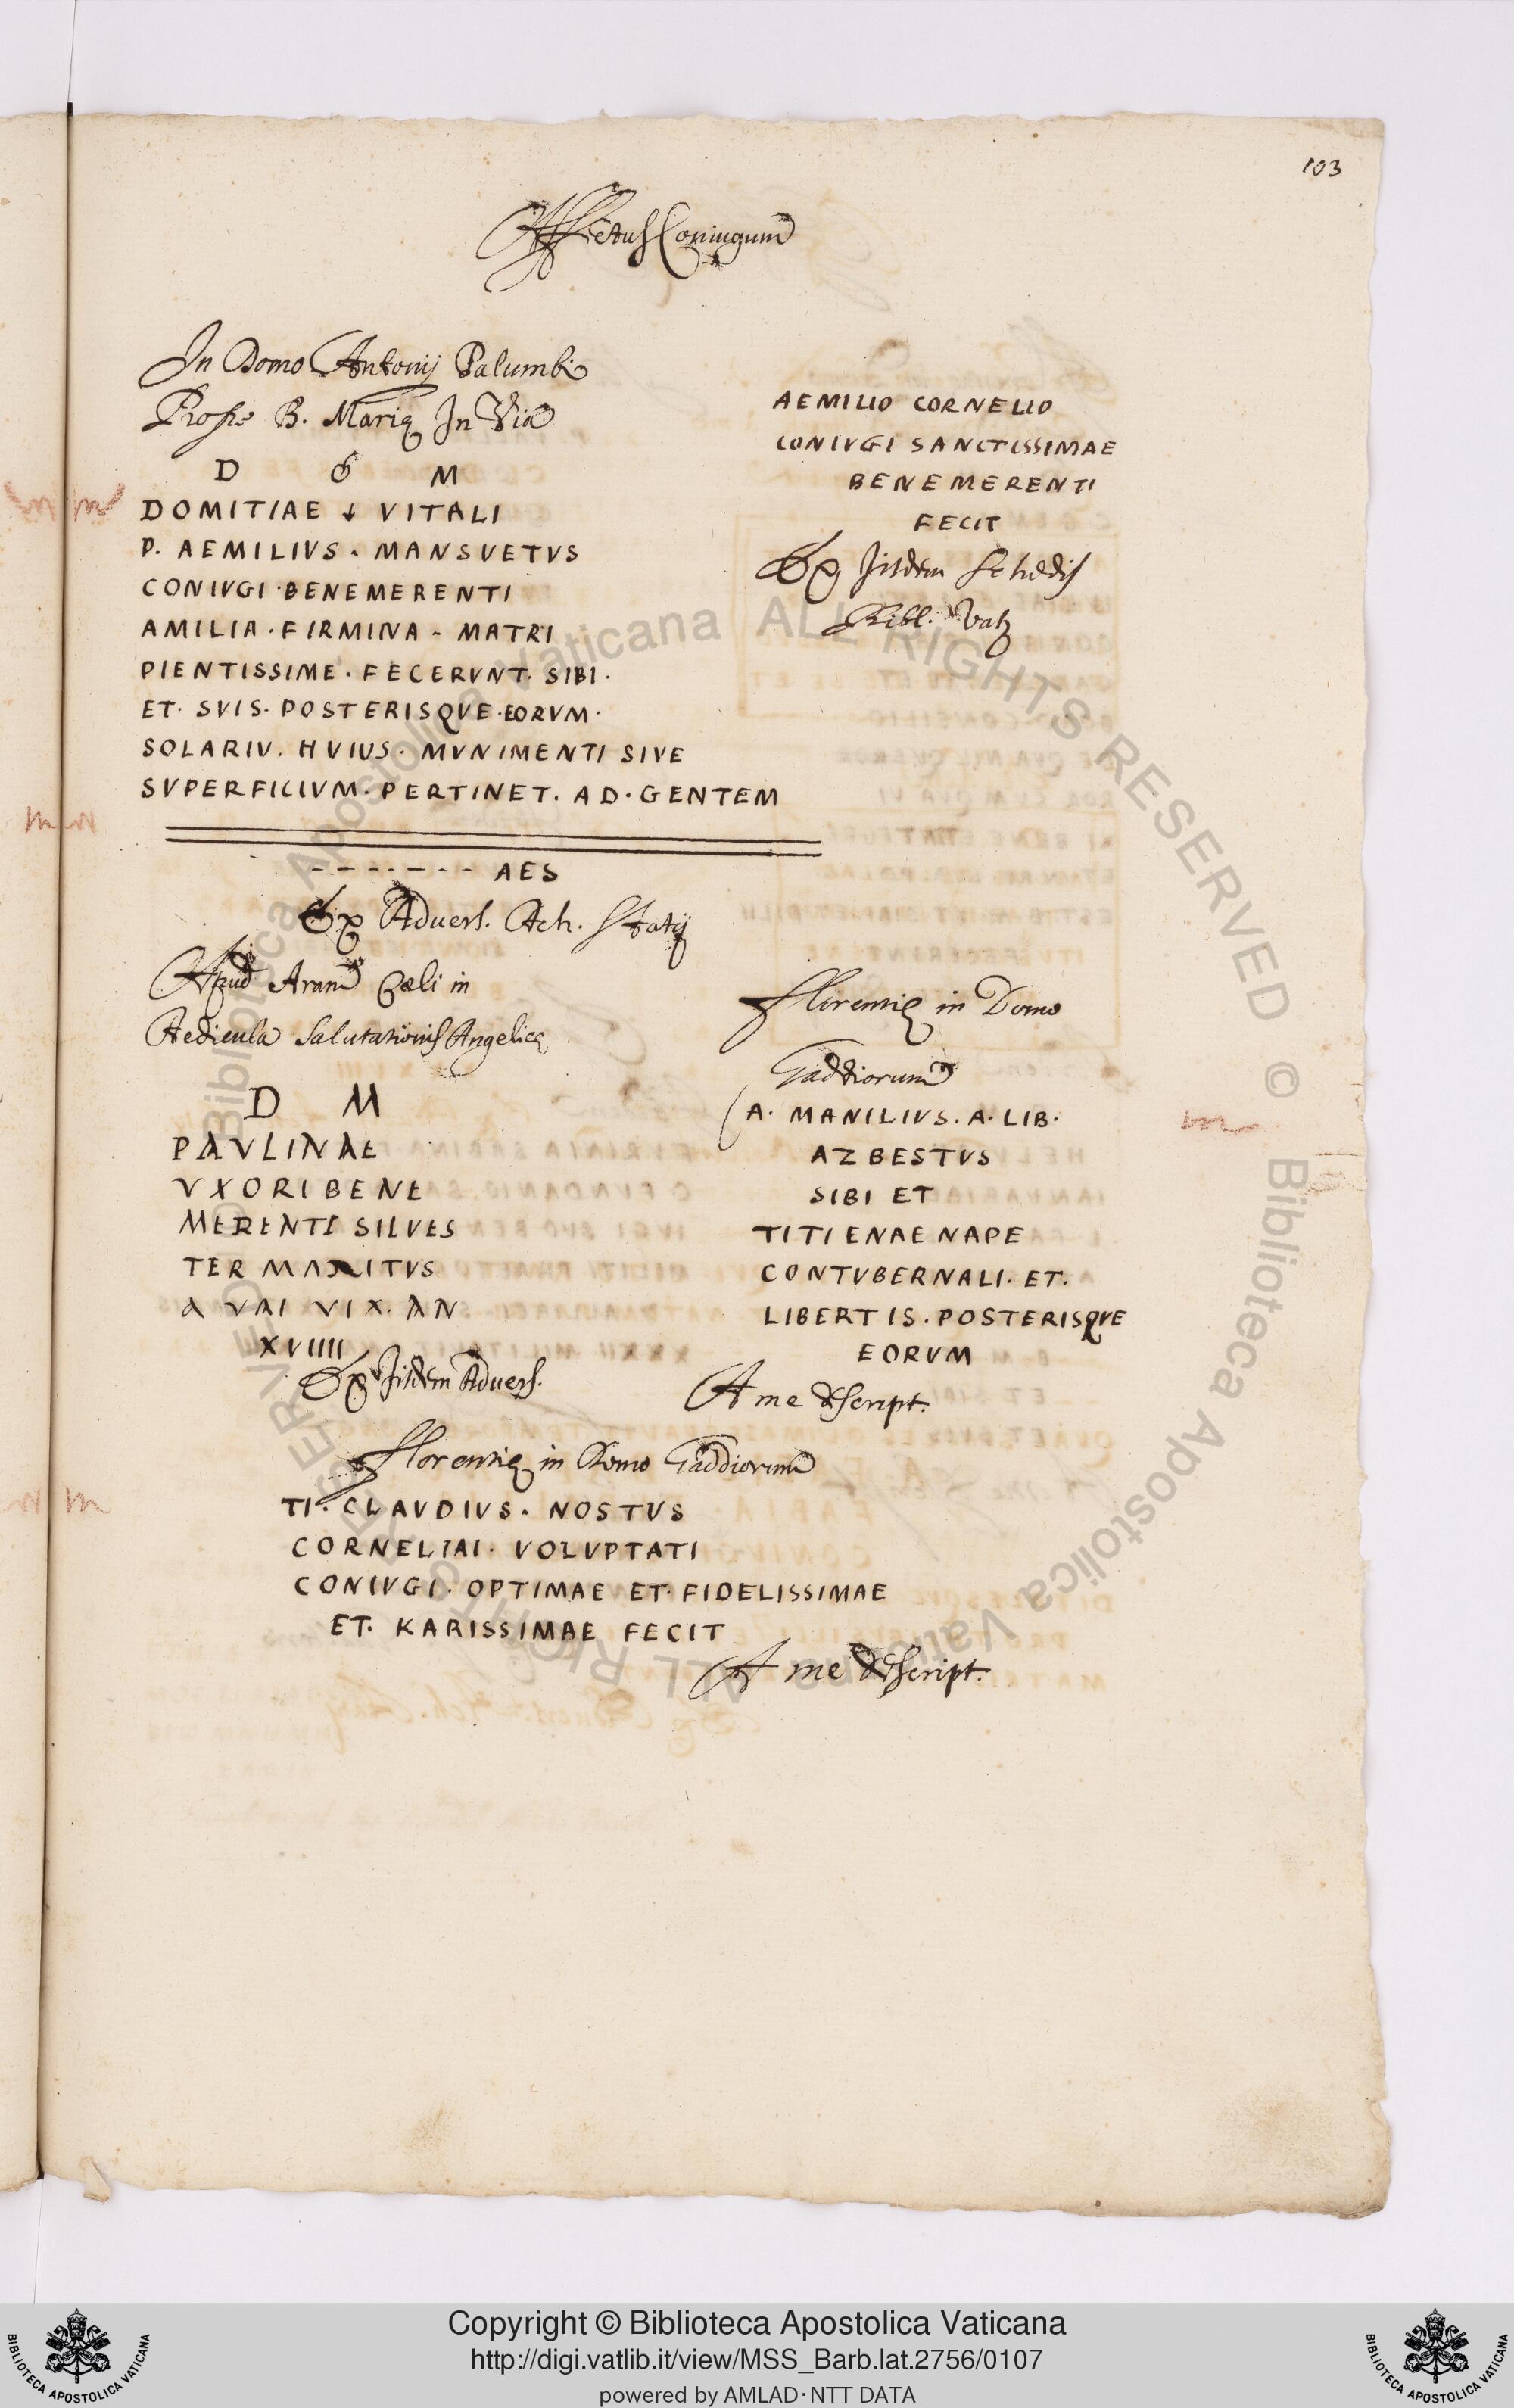 103
Affectus Coniugum
In Domo Antonij Palumbi
Prope B. Marię In Via
D M
DOMITIAE VITALI
P. AEMILIVS · MANSVETVS
CONIVGI · BENEMERENTI
AMILIA · FIRMINA - MATRI
PIENTISSIME · FECERVNT · SIBI ·
ET · SVIS · POSTERISQVE · EORVM ·
SOLARIV . HVIUS · MVNIMENTI SIVE
SVPERFICIVM · PERTINET . AD · GENTEM
- - - - - - - AES
Ex Advers. Ach. Statij
AEMILIO CORNELIO
CONIVGI SANCTISSIMAE
BENEMERENTI
FECIT
Ex Jisdem Schedis
Bibl. Vat.
Apud Aram Cæli in
Aedicula Salutationis Angelicę
D M
PAVLINAE
VXORI BENE
MERENTI SILVES
TER MARITVS
QVAI VIX · AN
XVIIII
Ex Jisdem Advers.
Florentię in Domo
Gaddiorum
A · MANILIVS . A · LIB ·
AZBESTVS
SIBI ET
TITIENAE NAPE
CONTVBERNALI · ET ·
LIBERTIS . POSTERISQVE
EORVM
A me descript.
Florentię in Domo Gaddiorum
TI · CLAVDIVS · NOSTVS
CORNELIAI · VOLVPTATI
CONIVGI · OPTIMAE ET · FIDELISSIMAE
ET · KARISSIMAE FECIT
A me descript.
Copyright © Biblioteca Apostolica Vaticana
http://digi.vatlib.it/view/MSS_Barb.lat.2756/0107
powered by AMLAD·NTT DATA
BIBLIOTECA APOSTOLICA VATICANA
BIBLIOTECA APOSTOLICA VATICANA